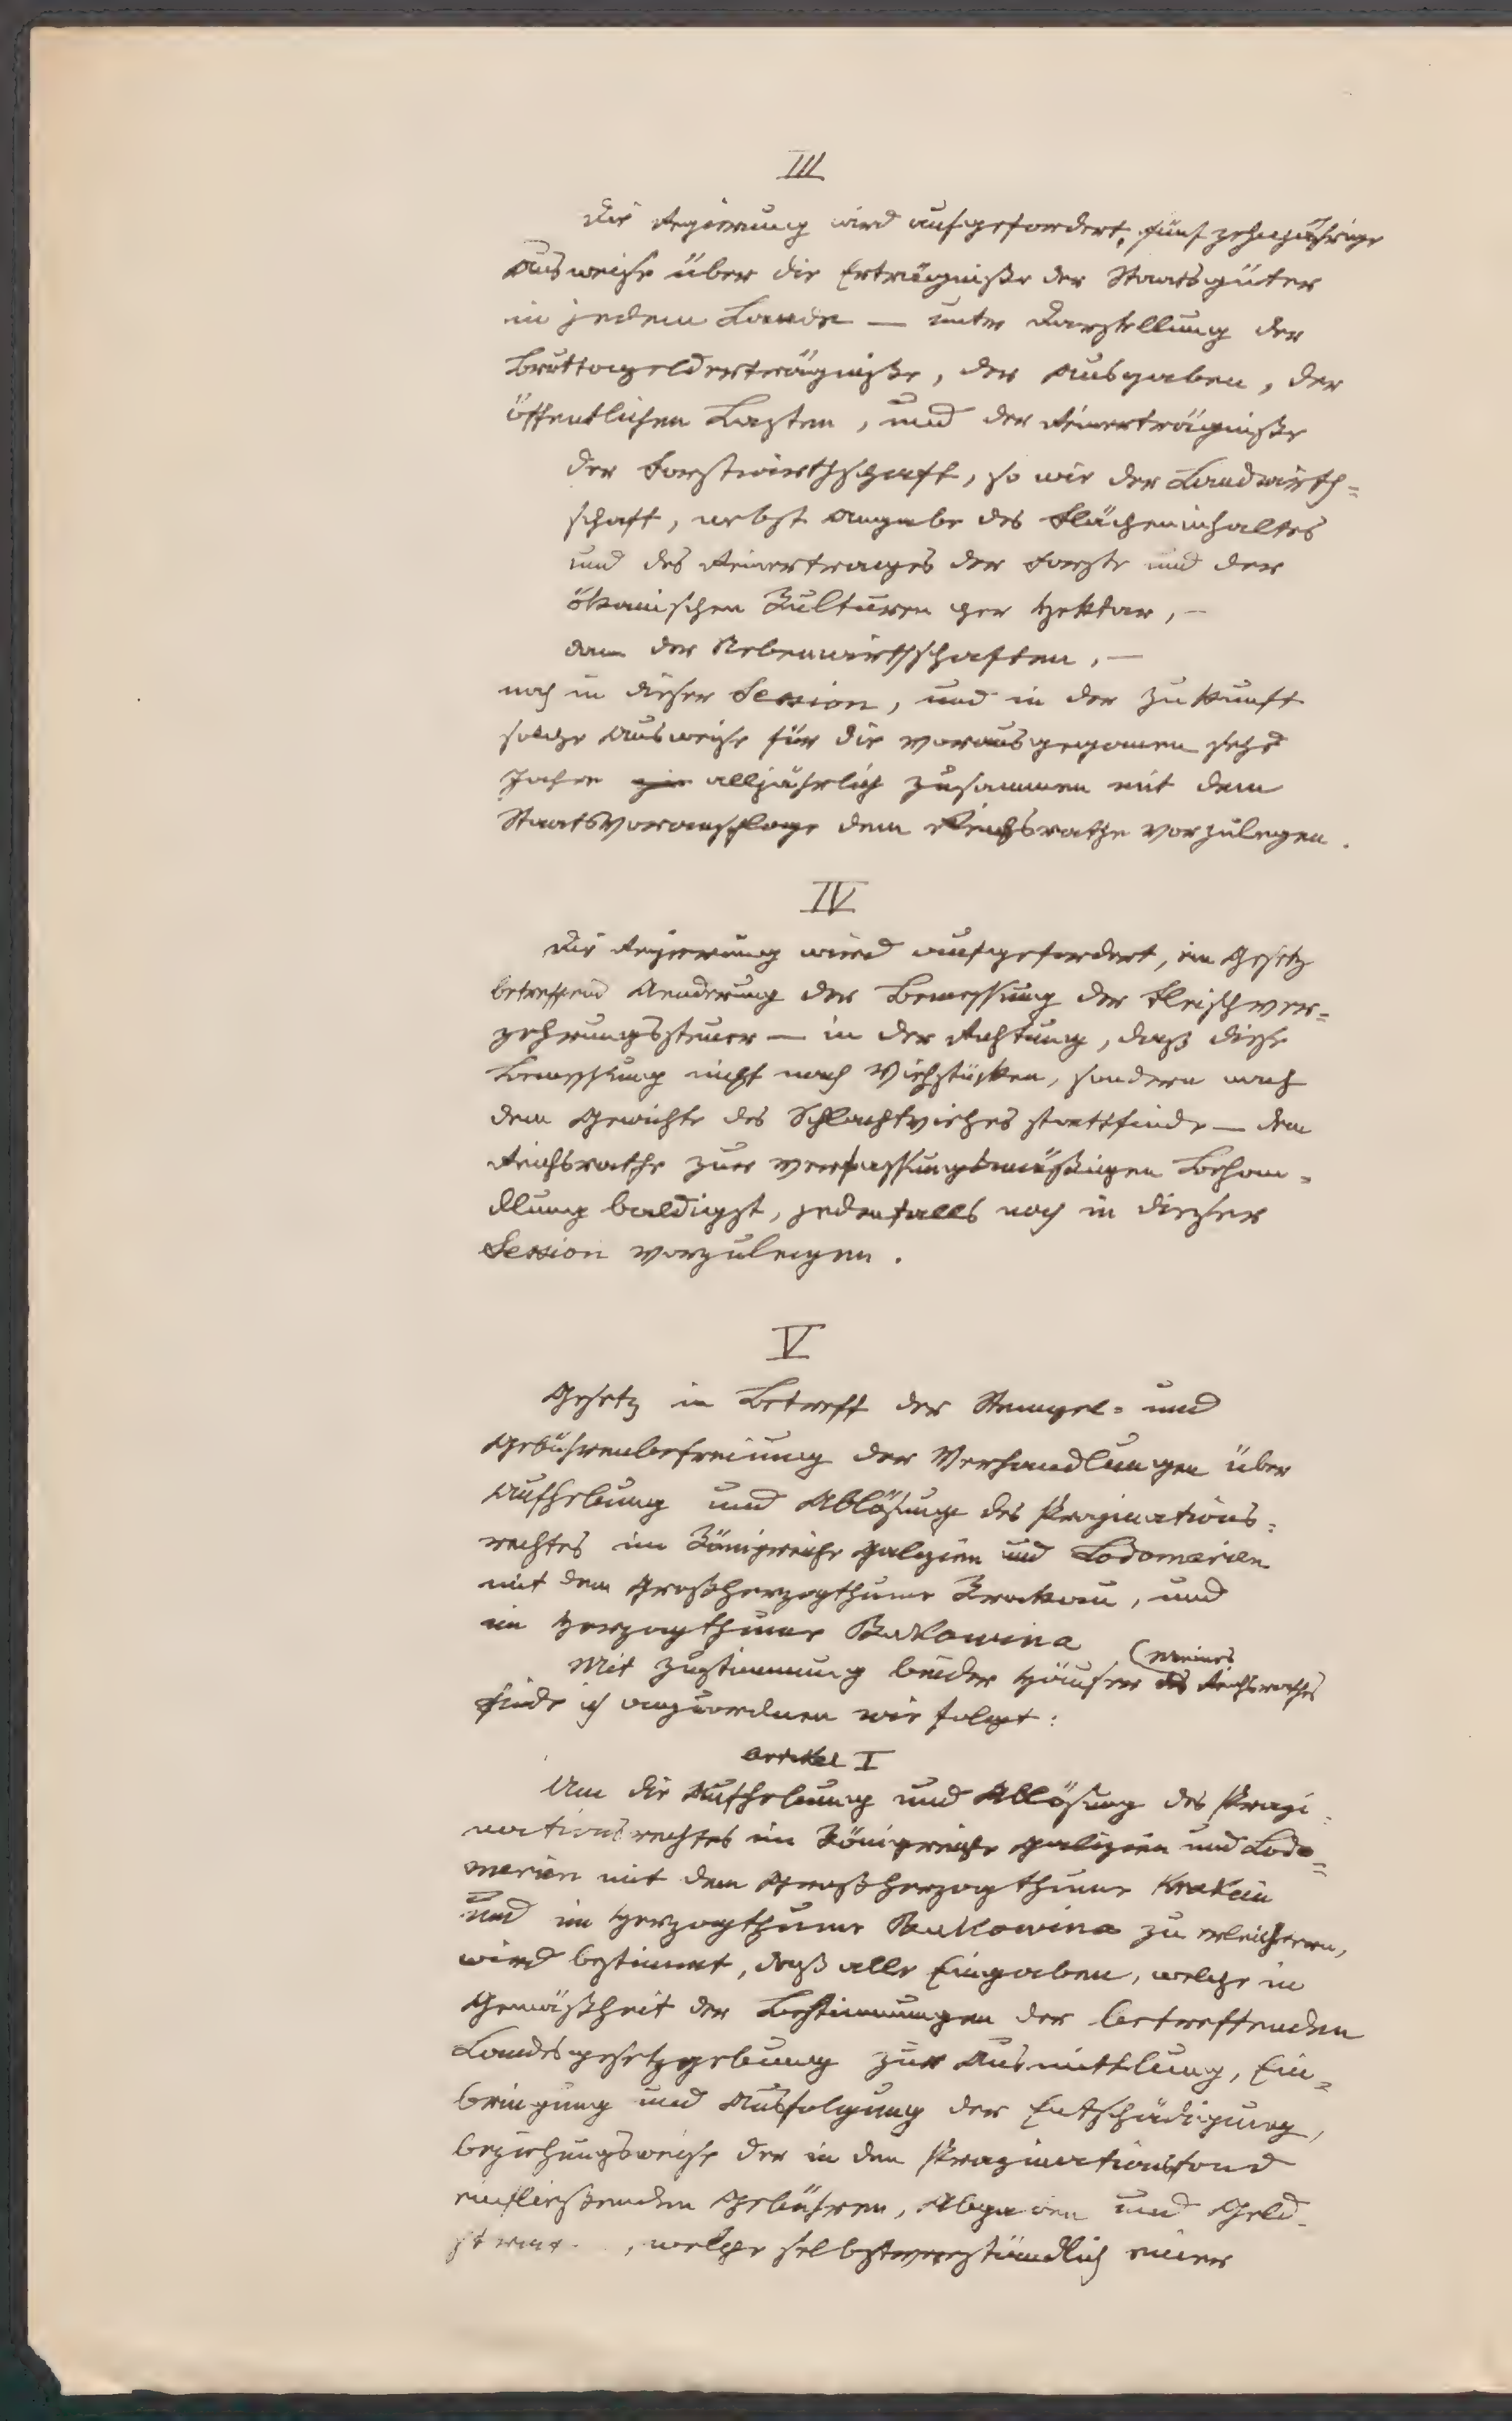 III
Die Regierung wird aufgefordert, fünfzehnjährige
Ausweise über die Erträgniße der Staatsgüter
in jedem Lande — unter Darstellung der
Bruttogelderträgniße, der Ausgaben, der
öffentlichen Lasten, und der Reinerträgniße
der Forstwirthschaft, so wie der Landwirth=
schaft, nebst Angabe des Flächeninhaltes
und des Reinertrages der Forste und der
ökonomischen Kulturen per Hektar, —
dann der Nebenwirthschaften, —
noch in dieser Session, und in der Zukunft
solche Ausweise für die vorausgegangenen sechs
Jahre alljährlich zusammen mit dem
Staatsvoranschlage dem Reichsrathe vorzulegen.
IV
Die Regierung wird aufgefordert, ein Gesetz
betreffend Aenderung der Bemessung der Fleischver=
zehrungssteuer — in der Richtung, daß diese
Bemessung nicht nach Viehstücken, sondern nach
dem Gewichte des Schlachtviehes stattfinde — dem
Reichsrathe zur verfassungsmäßigen Behan=
dlung baldigst, jedenfalls noch in dieser
Session vorzulegen.
V
Gesetz in Betreff der Stempel= und
Gebührenbefreiung der Verhandlungen über
Aufhebung und Ablösung des Propinations=
rechtes im Königreiche Galizien und Lodomerien
mit dem Großherzogthume Krakau, und
im Herzogthume Bukowina
(Meines
Mit Zustimmung beider Häuser des Reichsrathes
finde ich anzuordnen wie folgt:
Artikel I
Um die Aufhebung und Ablösung des Propi=
nationsrechtes im Königreiche Galizien und Lodo=
merien mit dem Großherzogthume Krakau
und im Herzogthume Bukowina zu erleichtern,
wird bestimmt, daß alle Eingaben, welche in
Gemäßheit der Bestimmungen der betreffenden
Landesgesetzgebung zur Ausmittlung, Ein=
bringung und Ausfolgung der Entschädigung,
beziehungsweise der in den Propinationsfond
einfließenden Gebühren, Abgaben und Geld=
, welche selbstverständlich einer